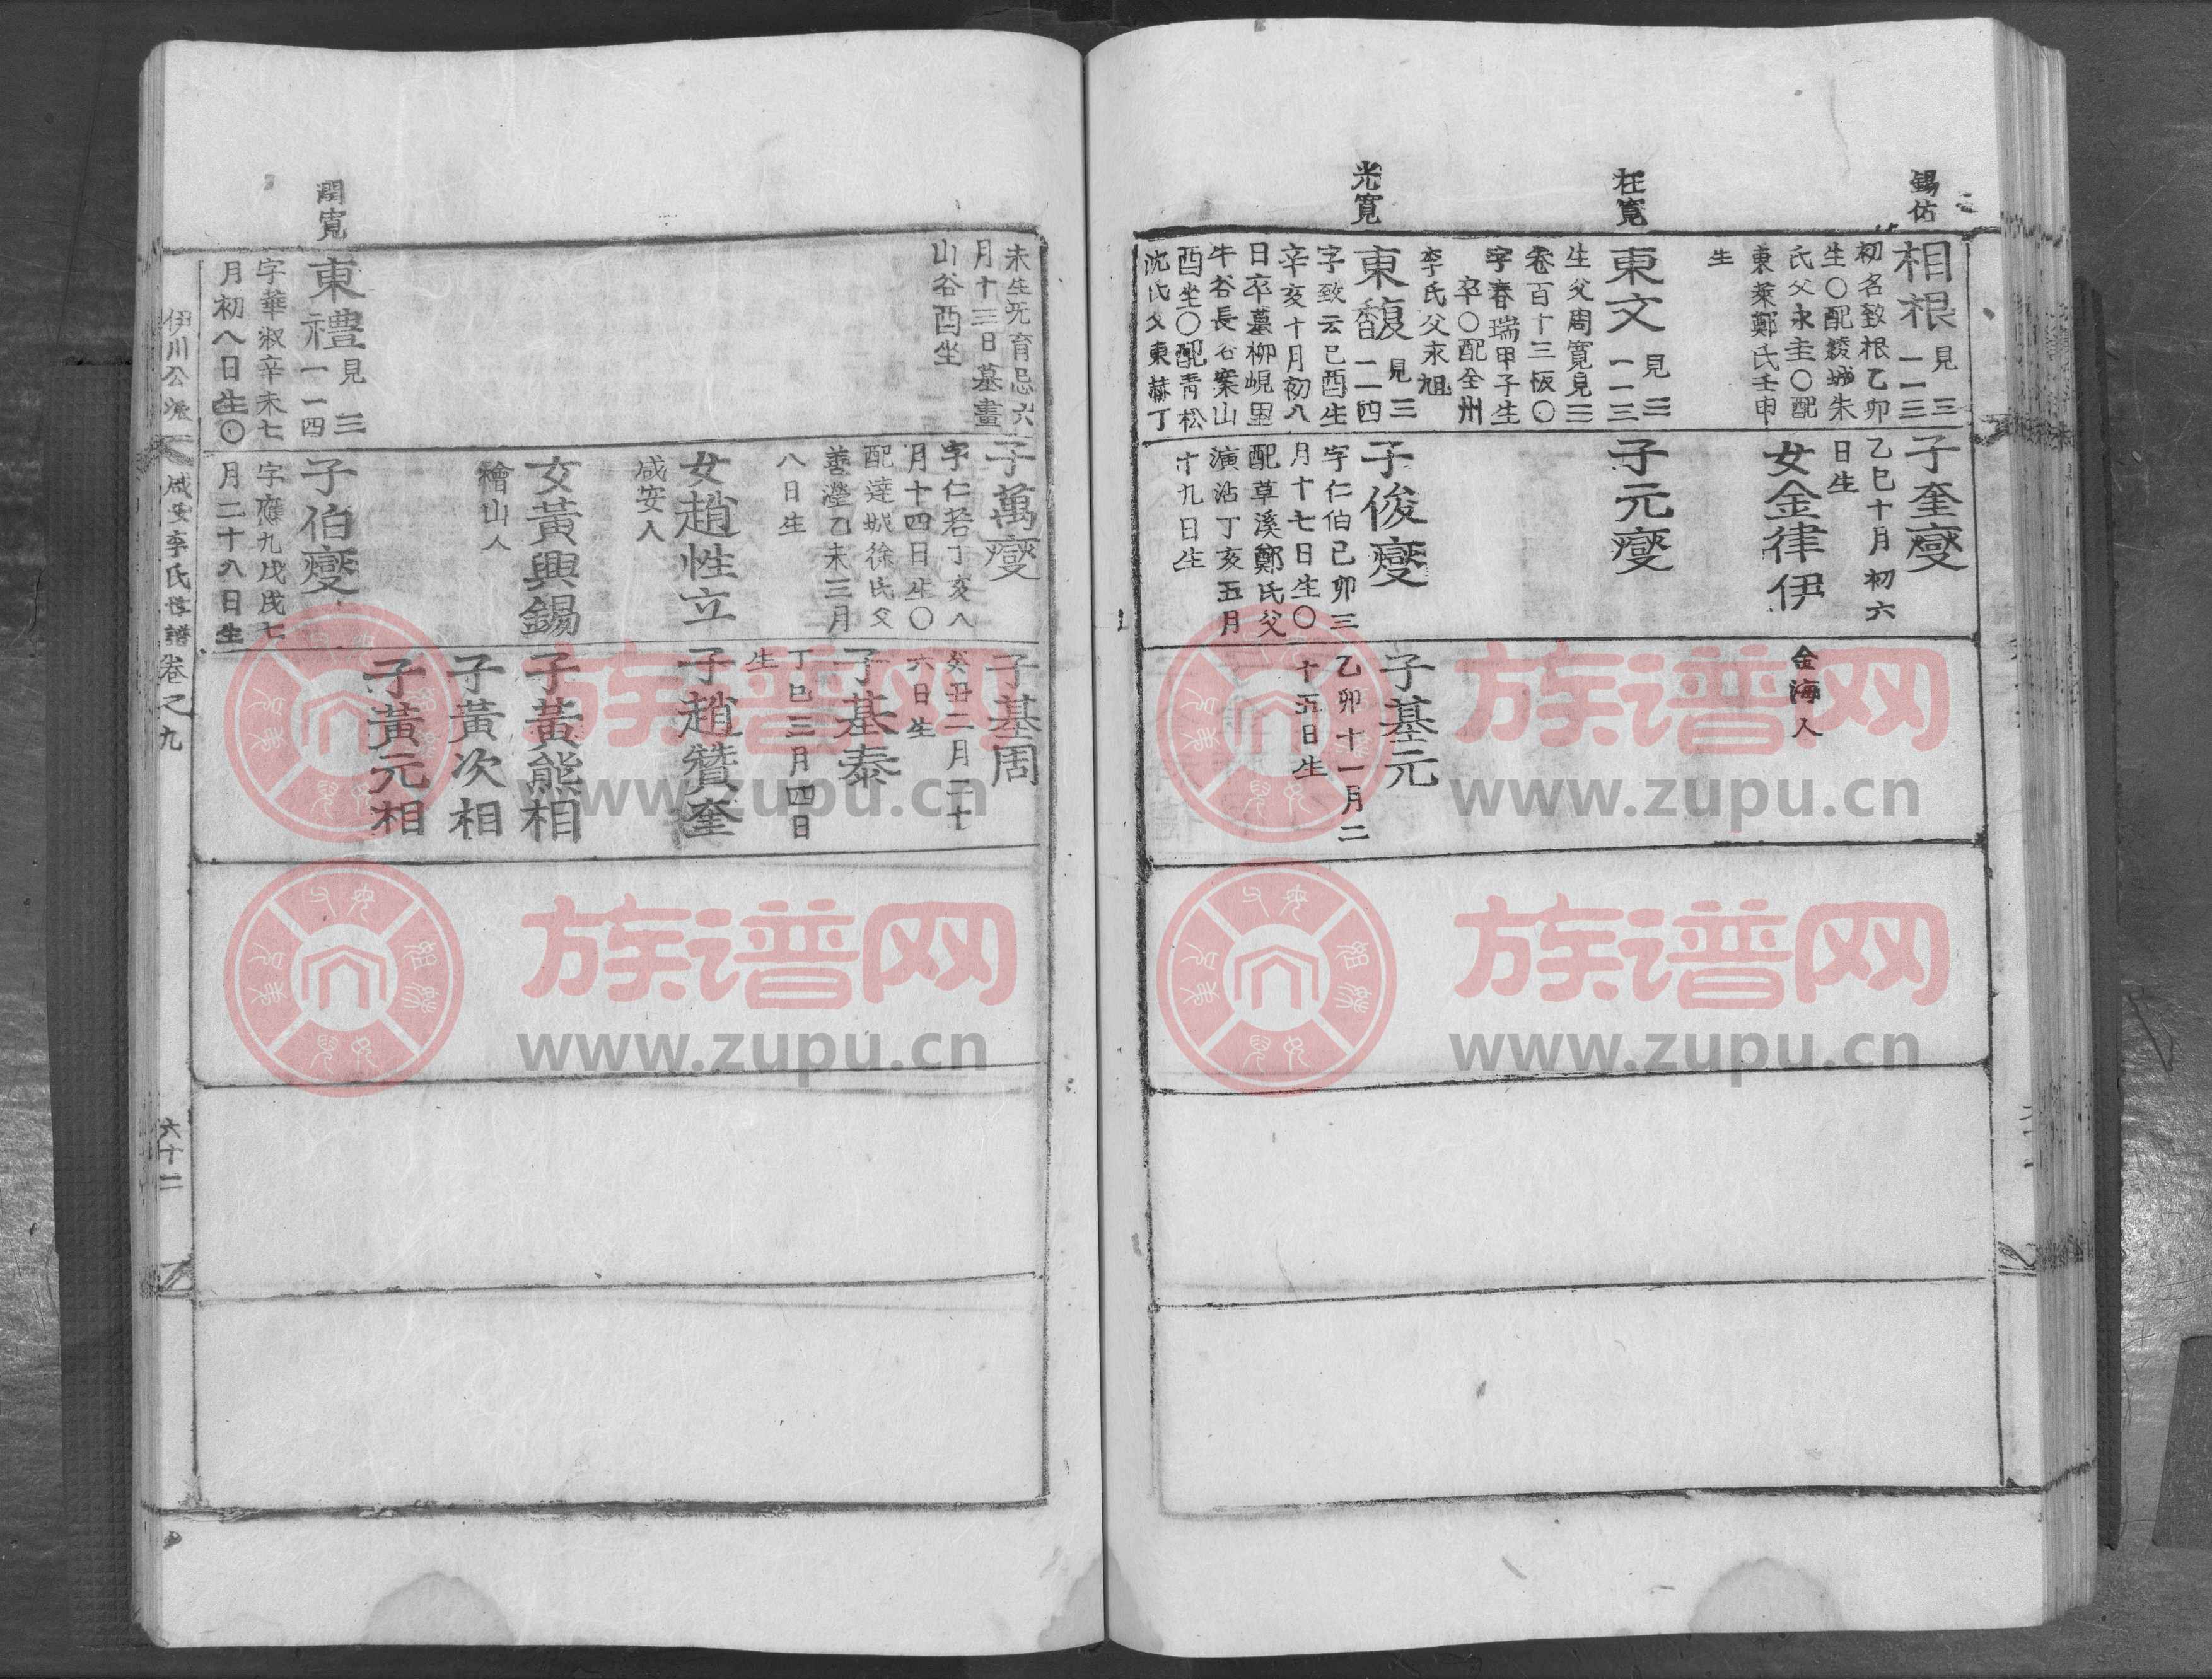 錫佑
相根
見三
一一三
初名致根乙卯
生〇配綾城朱
氏父永圭〇配
東萊鄭氏壬申
生
枉寬
東文
見三
一一三
生父周寬見三
卷百十三板〇
字春瑞甲子生
卒〇配全州
李氏父永旭
光寬
東馥
見三
一一四
字致云己酉生
辛亥十月初八
日卒墓柳峴里
牛谷長谷案山
酉坐〇配青松
沈氏父東赫丁
子奎燮
乙巳十月初六
日生
女金律伊
子元燮
子俊燮
字仁伯己卯三
月十七日生〇
配草溪鄭氏父
演沽丁亥五月
十九日生
金海人
子基元
乙卯十一月二
十五日生
未生旡育忌六
月十三日墓畫
山谷酉坐
閏寬
東禮
見三
一一四
字華淑辛未七
月初八日生〇
子萬燮
字仁若丁亥八
月十四日生〇
配達城徐氏父
善瀅乙未三月
八日生
女趙性立
咸安人
女黃興錫
檜山人
子伯燮
字應九戊戌七
月二十八日生
子基周
癸丑二月二十
六日生
子基泰
丁巳三月四日
生
子趙贊奎
子黃熊相
子黃次相
子黃元相
伊川公派
咸安李氏世譜
卷之九
六十二
族谱网
www.zupu.cn
族谱网
www.zupu.cn
族谱网
www.zupu.cn
族谱网
www.zupu.cn